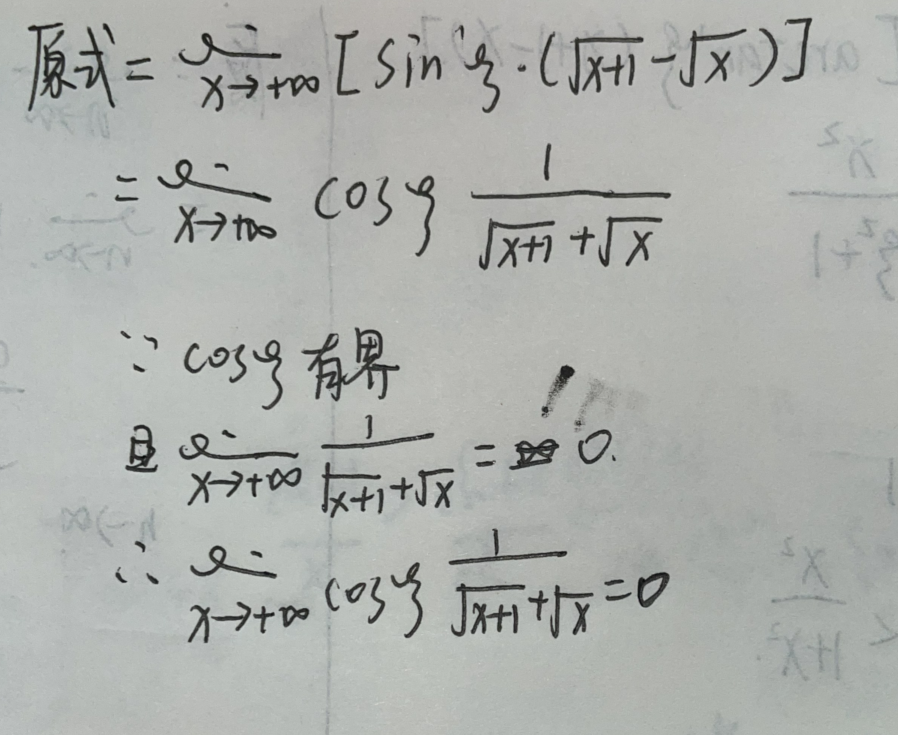 原式 = lim x→+∞ [sin'ξ·(√(x+1) - √x)]
= lim x→+∞ cosξ 1/(√(x+1) + √x)
∵ cosξ 有界
且 lim x→+∞ 1/(√(x+1) + √x) = 0.
∴ lim x→+∞ cosξ 1/(√(x+1) + √x) = 0